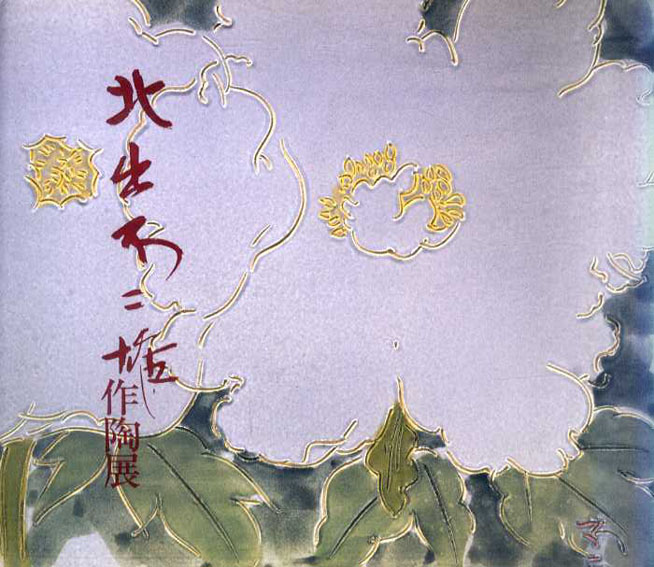 北出不二雄
作陶展
不二